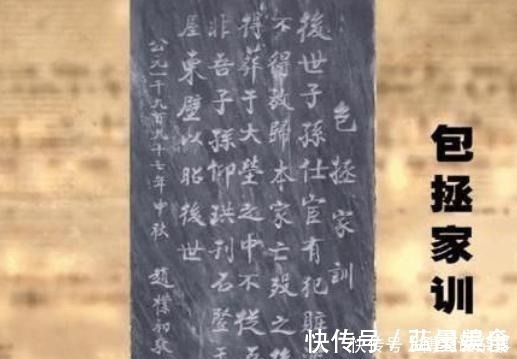 包拯家訓
後世子孫仕宦有犯
不得放歸本家亡殁之
得葬于大塋之中不從
非吾子孫仰珙刊石竪
屋東壁以昭後世
公元一千九百九十七年中秋 趙樸初
包拯家训
快传号 /